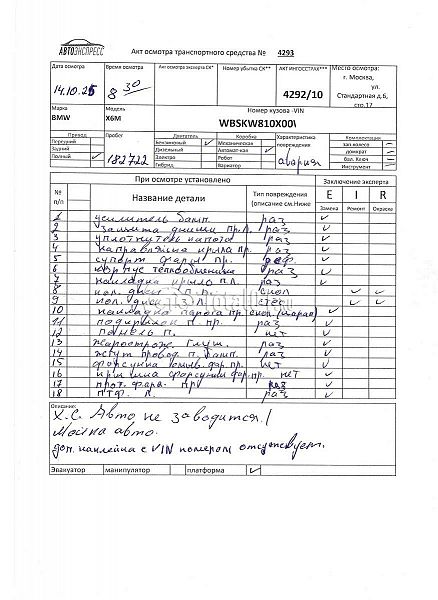 АВТОЭКСПРЕСС
Акт осмотра транспортного средства № 4293
Дата осмотра Время осмотра Акт осмотра эксперта СК* Номер убытка СК** АКТ ИНГОССТРАХ*** Место осмотра:
14.10.25 8 30 4292/10 г. Москва, ул. Стандартная д.6, стр.17
Марка Модель Номер кузова -VIN
BMW X6M WBSKW810X00
Привод Пробег Двигатель Коробка Характеристика повреждения Комплектация
Передний Бензиновый Механическая зап колесо
Задний Дизельный Автомат-кая домкрат
Полный 182722 Электро Робот авария бал. Ключ
Гибрид Вариатор Инструмент
При осмотре установлено Заключение эксперта
№ п/п Название детали Тип повреждения (описание см.Ниже E I R
Замена Ремонт Окраска
1 усилитель бамп. раз
2 защита днища пр.л. раз
3 уплотнитель капота раз
4 направляющ крыла пр. раз
5 суппорт фары пр. деф.
6 корпус теплообменника раз
7 накладка крыло п.л. раз
8 кол. диск з.п. скол
9 кол. диск з.л. стёс
10 накладка порога пр. скол (царап)
11 подкрылок п. пр. раз
12 панель п. нет
13 жароотраж. Глуш. раз
14 жгут провод п. бамп. раз
15 форсунка омыв. фар. пр. нет
16 крышка форсунки фар. пр. нет
17 прот. фара. пр раз
18 ПТФ. л. раз
Описание:
Х.С. Авто не заводится.!
Мойка авто.
доп. наклейка с VIN номером отсутствует.
Эвакуатор манипулятор платформа